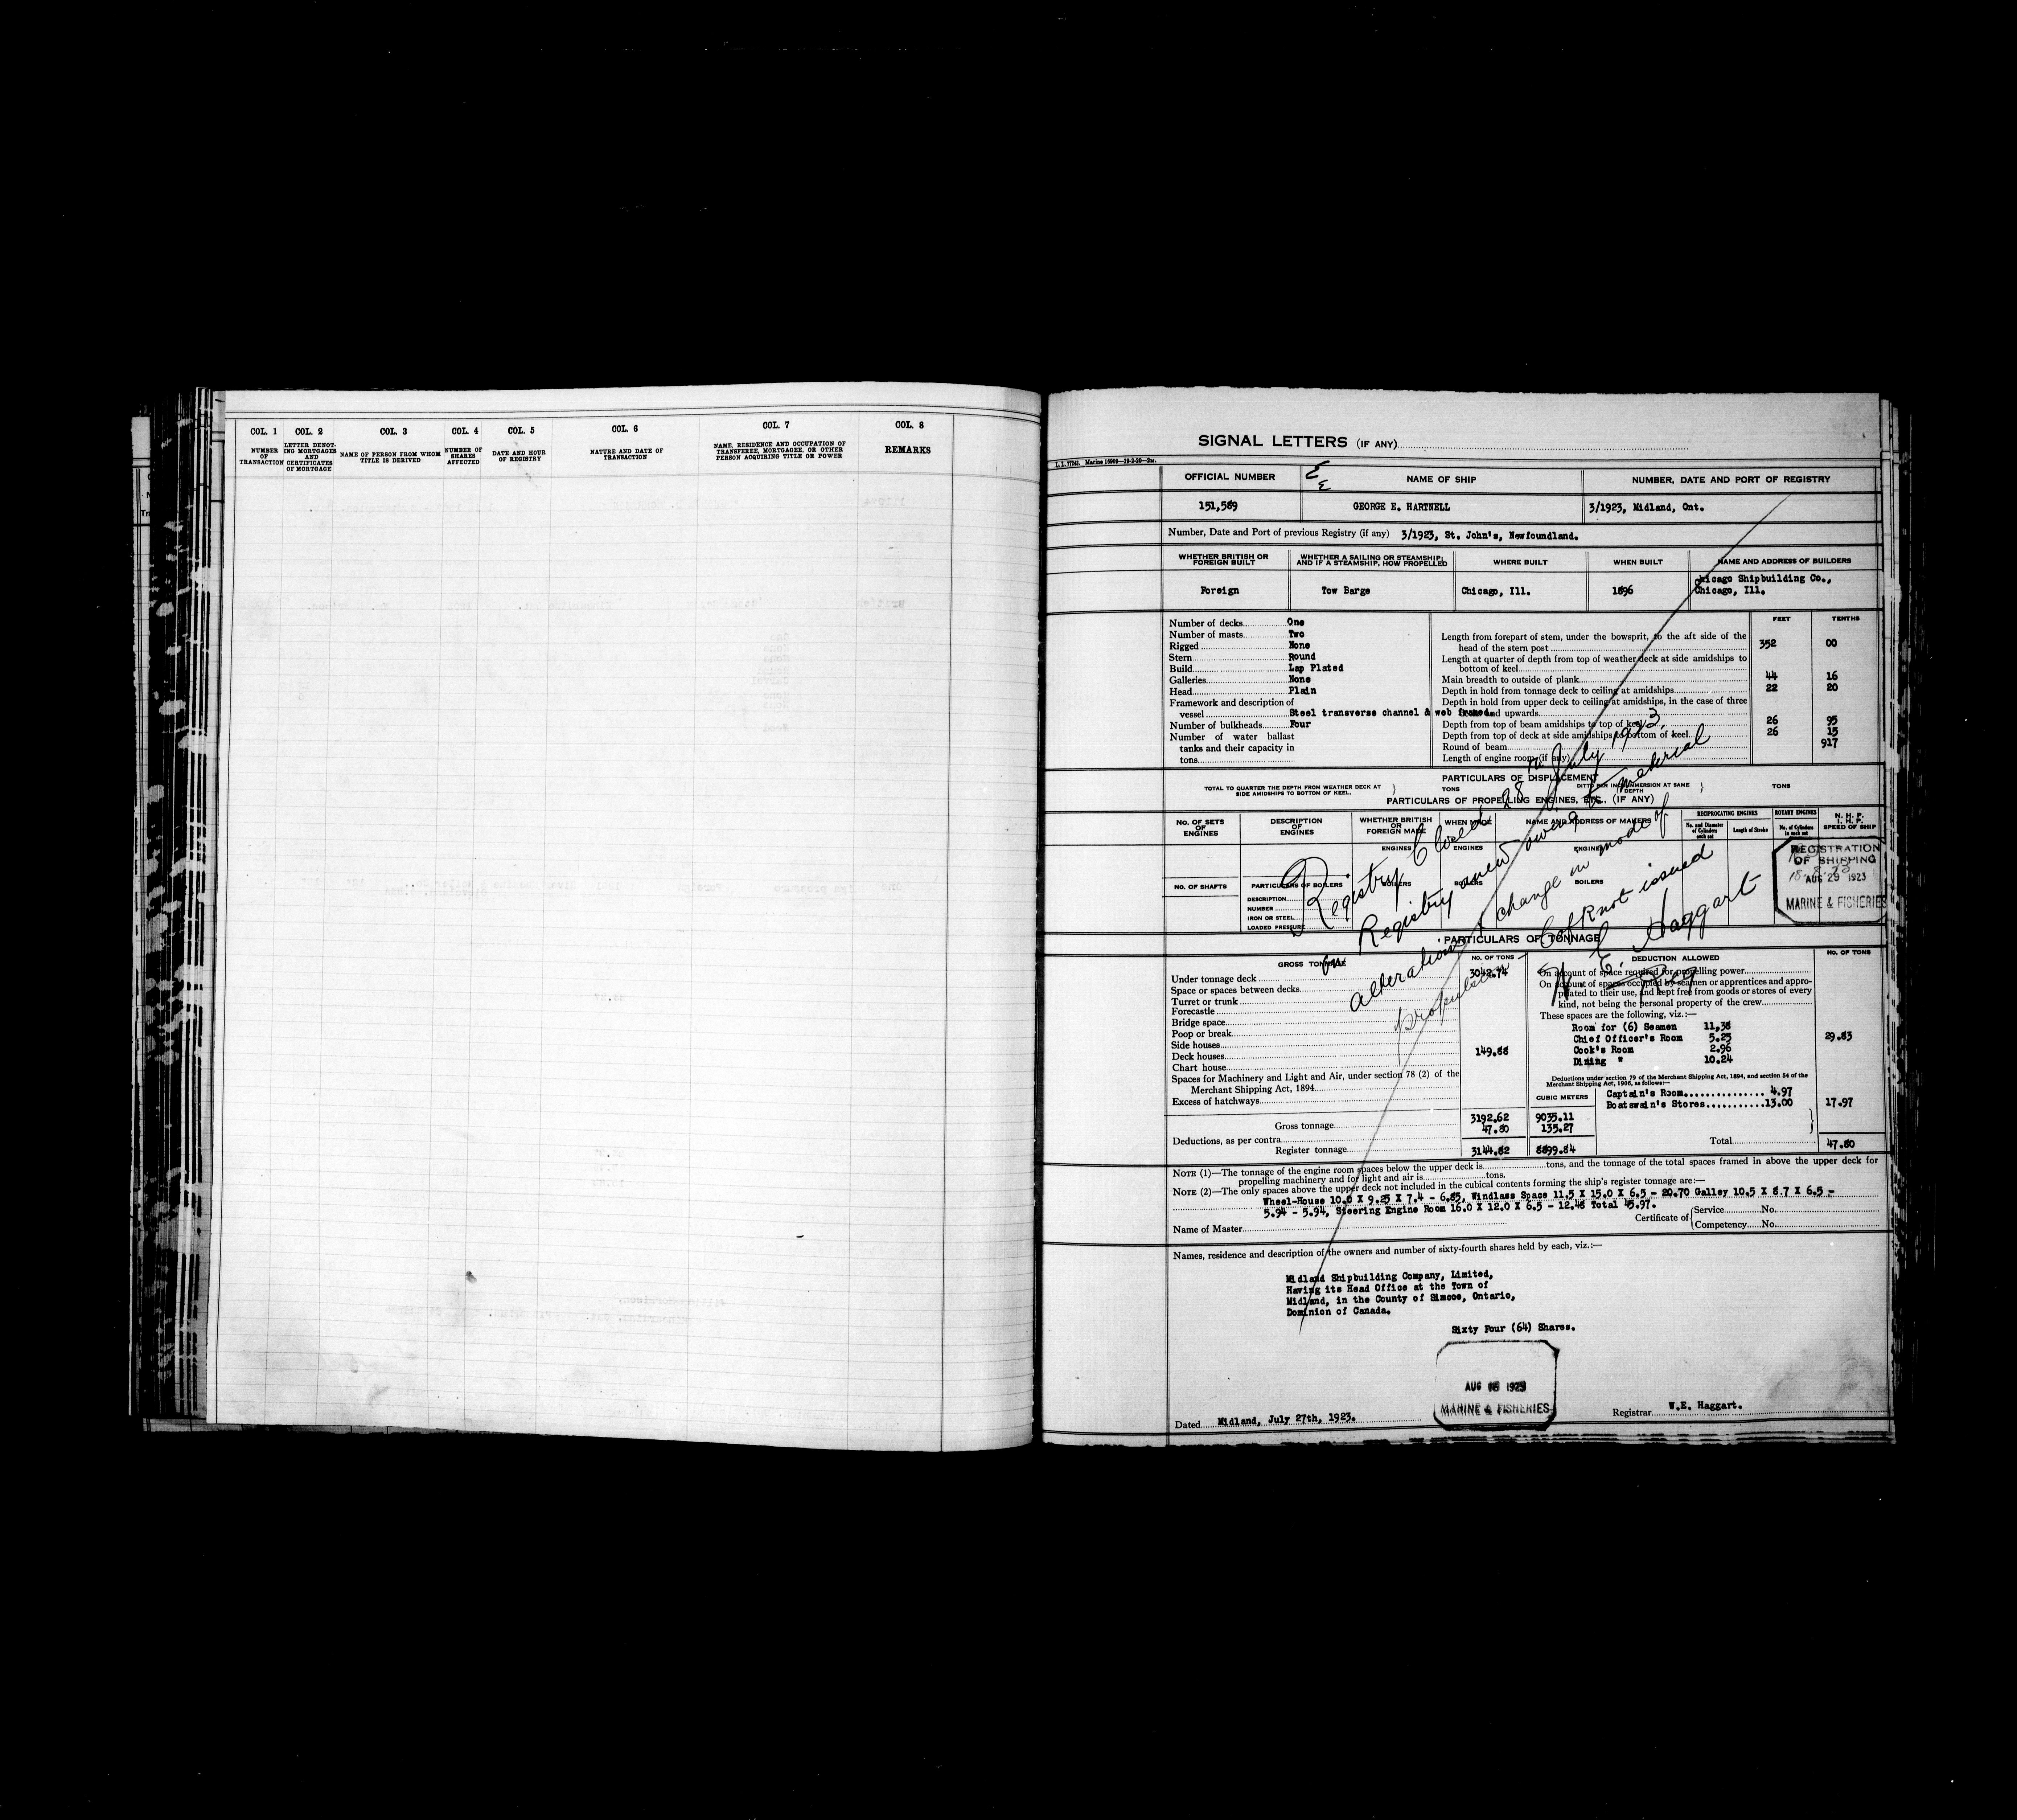 COL. 1 COL. 2 COL. 3 COL. 4 COL. 5 COL. 6 COL. 7 COL. 8
NUMBER OF TRANSACTION
LETTER DENOTING MORTGAGES AND CERTIFICATES OF MORTGAGE
NAME OF PERSON FROM WHOM TITLE IS DERIVED
NUMBER OF SHARES AFFECTED
DATE AND HOUR OF REGISTRY
NATURE AND DATE OF TRANSACTION
NAME, RESIDENCE AND OCCUPATION OF TRANSFEREE, MORTGAGEE, OR OTHER PERSON ACQUIRING TITLE OR POWER
REMARKS
SIGNAL LETTERS (IF ANY)
OFFICIAL NUMBER NAME OF SHIP NUMBER, DATE AND PORT OF REGISTRY
151,569 GEORGE E. HARTNELL 3/1923, Midland, Ont.
Number, Date and Port of previous Registry (if any) 3/1923, St. John's, Newfoundland.
WHETHER BRITISH OR FOREIGN BUILT
WHETHER A SAILING OR STEAMSHIP; AND IF A STEAMSHIP, HOW PROPELLED
WHERE BUILT WHEN BUILT NAME AND ADDRESS OF BUILDERS
Foreign Tow Barge Chicago, Ill. 1896 Chicago Shipbuilding Co.,
Chicago, Ill.
FEET TENTHS
Number of decks One
Number of masts Two
Rigged None
Stern Round
Build Lap Plated
Galleries None
Head Plain
Framework and description of
vessel Steel transverse channel & web frames.
Number of bulkheads Four
Number of water ballast
tanks and their capacity in
tons
Length from forepart of stem, under the bowsprit, to the aft side of the
head of the stern post 352 00
Length at quarter of depth from top of weather deck at side amidships to
bottom of keel
Main breadth to outside of plank 44 16
Depth in hold from tonnage deck to ceiling at amidships 22 20
Depth in hold from upper deck to ceiling at amidships, in the case of three
decks and upwards
Depth from top of beam amidships to top of keel 26 95
Depth from top of deck at side amidships to bottom of keel 26 15
Round of beam 917
Length of engine room (if any)
PARTICULARS OF DISPLACEMENT
TOTAL TO QUARTER THE DEPTH FROM WEATHER DECK AT SIDE AMIDSHIPS TO BOTTOM OF KEEL. TONS DITTO PER INCH IMMERSION AT SAME DEPTH TONS
PARTICULARS OF PROPELLING ENGINES, ETC., (IF ANY)
No. OF SETS OF ENGINES
DESCRIPTION OF ENGINES
WHETHER BRITISH OR FOREIGN MADE
WHEN MADE
NAME AND ADDRESS OF MAKERS
RECIPROCATING ENGINES
No. and Diameter of Cylinders each set
Length of Stroke
ROTARY ENGINES
No. of Cylinders in each set
N. H. P.
I. H. P.
SPEED OF SHIP
ENGINES ENGINES ENGINES
No. OF SHAFTS PARTICULARS OF BOILERS BOILERS BOILERS BOILERS
DESCRIPTION
NUMBER
IRON OR STEEL
LOADED PRESSURE
REGISTRATION
OF SHIPPING
AUG 29 1923
MARINE & FISHERIES
Registry Closed 28 July 1923
for Registry anew owing to material
alteration & change in mode of
propulsion - C of R not issued
W. E. Haggart
Reg
PARTICULARS OF TONNAGE
GROSS TONNAGE No. OF TONS
Under tonnage deck 3042.74
Space or spaces between decks
Turret or trunk
Forecastle
Bridge space
Poop or break
Side houses
Deck houses 149.88
Chart house
Spaces for Machinery and Light and Air, under section 78 (2) of the
Merchant Shipping Act, 1894
Excess of hatchways
CUBIC METERS
Gross tonnage 3192.62 9035.11
Deductions, as per contra 47.80 135.27
Register tonnage 3144.82 8899.84
DEDUCTION ALLOWED No. OF TONS
On account of space required for propelling power
On account of spaces occupied by seamen or apprentices and appro-
priated to their use, and kept free from goods or stores of every
kind, not being the personal property of the crew
These spaces are the following, viz.:—
Room for (6) Seamen 11.38
Chief Officer's Room 5.25 29.83
Cook's Room 2.96
Dining " 10.24
Deductions under section 79 of the Merchant Shipping Act, 1894, and section 54 of the
Merchant Shipping Act, 1906, as follows:—
Captain's Room 4.97
Boatswain's Stores 13.00 17.97
Total 47.80
NOTE (1)—The tonnage of the engine room spaces below the upper deck is tons, and the tonnage of the total spaces framed in above the upper deck for
propelling machinery and for light and air is tons.
NOTE (2)—The only spaces above the upper deck not included in the cubical contents forming the ship's register tonnage are:—
Wheel-House 10.0 X 9.25 X 7.4 - 6.85, Windlass Space 11.5 X 15.0 X 6.5 - 20.70 Galley 10.5 X 8.7 X 6.5 -
5.94 - 5.94, Steering Engine Room 16.0 X 12.0 X 6.5 - 12.48 Total 45.97.
Name of Master Certificate of Service No.
Competency No.
Names, residence and description of the owners and number of sixty-fourth shares held by each, viz.:—
Midland Shipbuilding Company, Limited,
Having its Head Office at the Town of
Midland, in the County of Simcoe, Ontario,
Dominion of Canada.
Sixty Four (64) Shares.
AUG 1923
MARINE & FISHERIES
Dated Midland, July 27th, 1923.
Registrar W.E. Haggart.